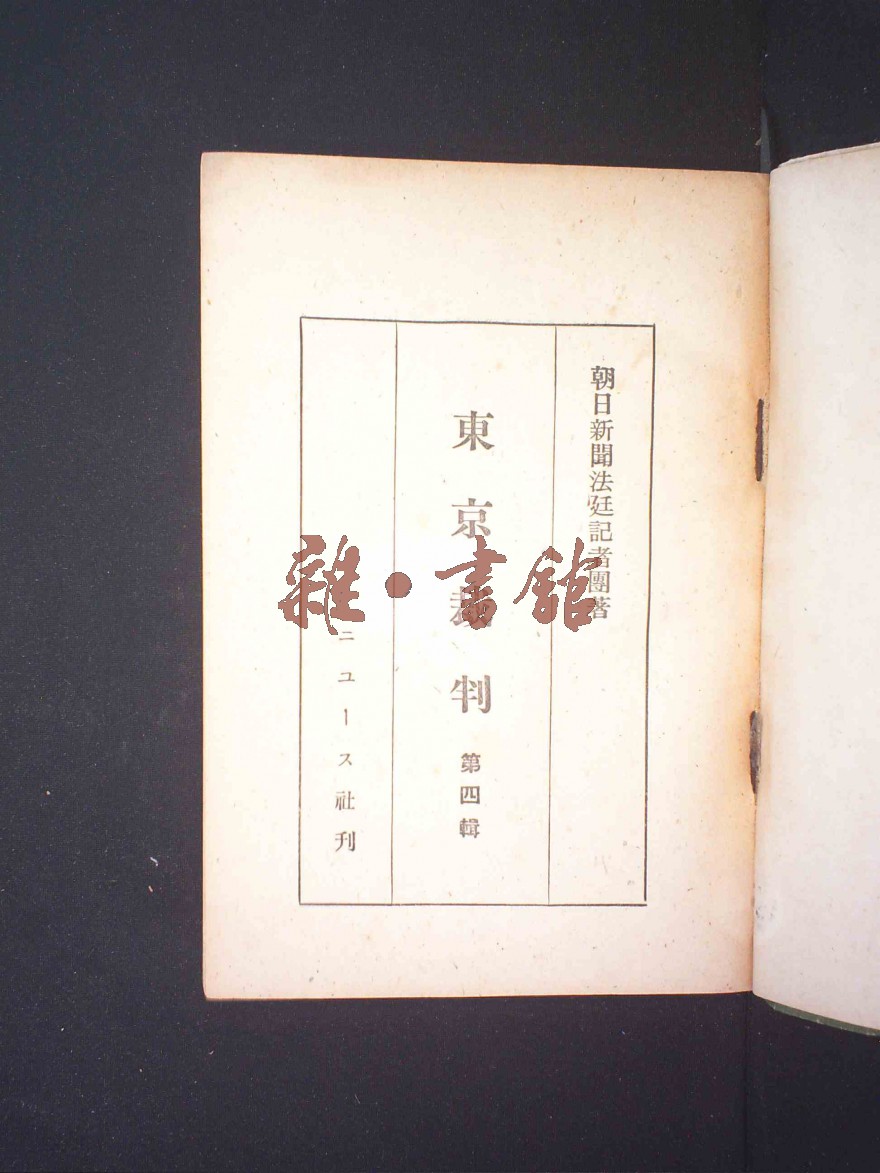 朝日新聞法廷記者團著
東京裁判
第四輯
ニュース社刊
雜·書館